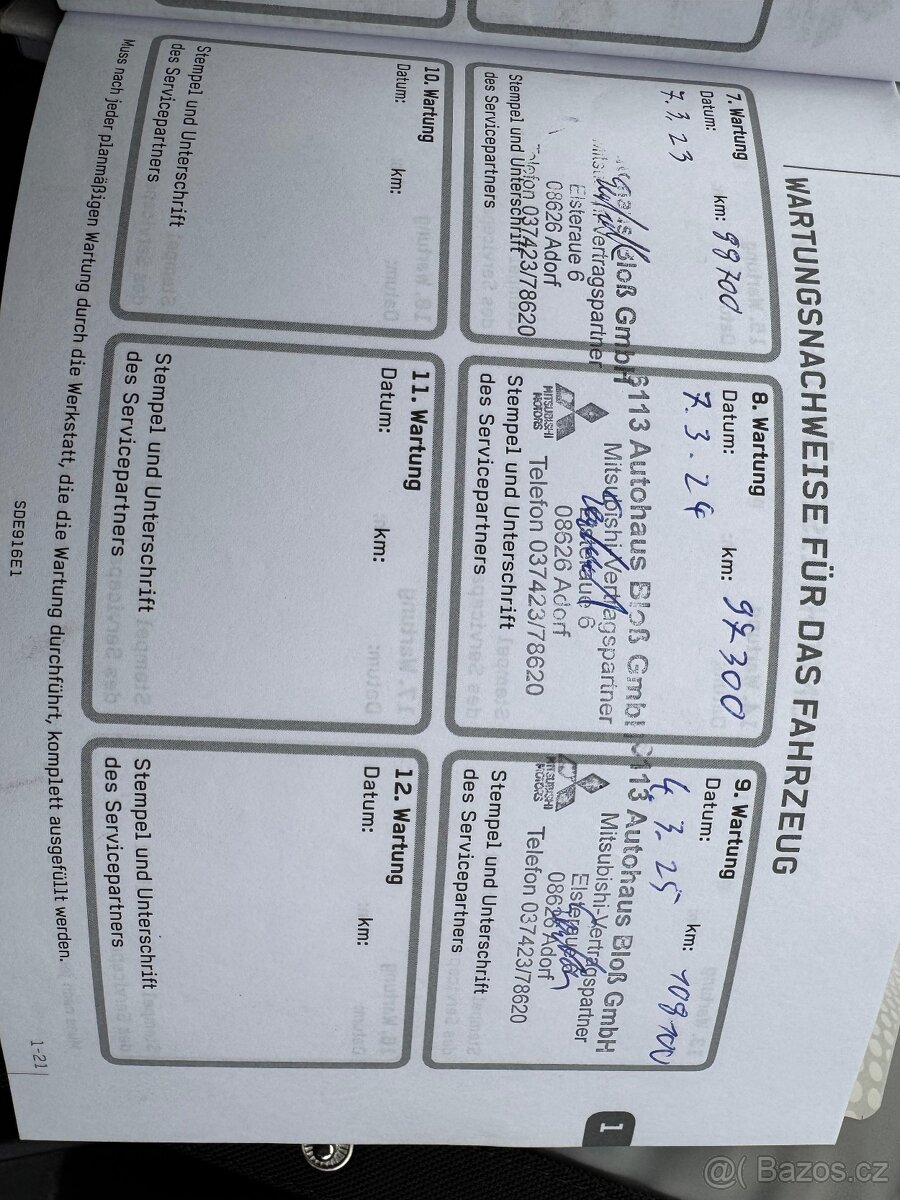 WARTUNGSNACHWEISE FÜR DAS FAHRZEUG
7. Wartung
Datum: km:
7.3.23
Bloß GmbH
Vertragspartner
Elsteraue 6
08626 Adorf
Telefon 037423/78620
Stempel und Unterschrift
des Servicepartners
8. Wartung
Datum: km: 97300
7.3.24
6113 Autohaus Bloß GmbH
Mitsubishi-Vertragspartner
Elsteraue 6
08626 Adorf
Telefon 037423/78620
MITSUBISHI
MOTORS
Stempel und Unterschrift
des Servicepartners
9. Wartung
Datum: km:
4.3.25
6113 Autohaus Bloß GmbH
Mitsubishi-Vertragspartner
Elsteraue 6
08626 Adorf
Telefon 037423/78620
MITSUBISHI
MOTORS
Stempel und Unterschrift
des Servicepartners
10. Wartung
Datum: km:
Stempel und Unterschrift
des Servicepartners
11. Wartung
Datum: km:
Stempel und Unterschrift
des Servicepartners
12. Wartung
Datum: km:
Stempel und Unterschrift
des Servicepartners
Muss nach jeder planmäßigen Wartung durch die Werkstatt, die die Wartung durchführt, komplett ausgefüllt werden.
SDE916E1
1-21
1
Bazos.cz